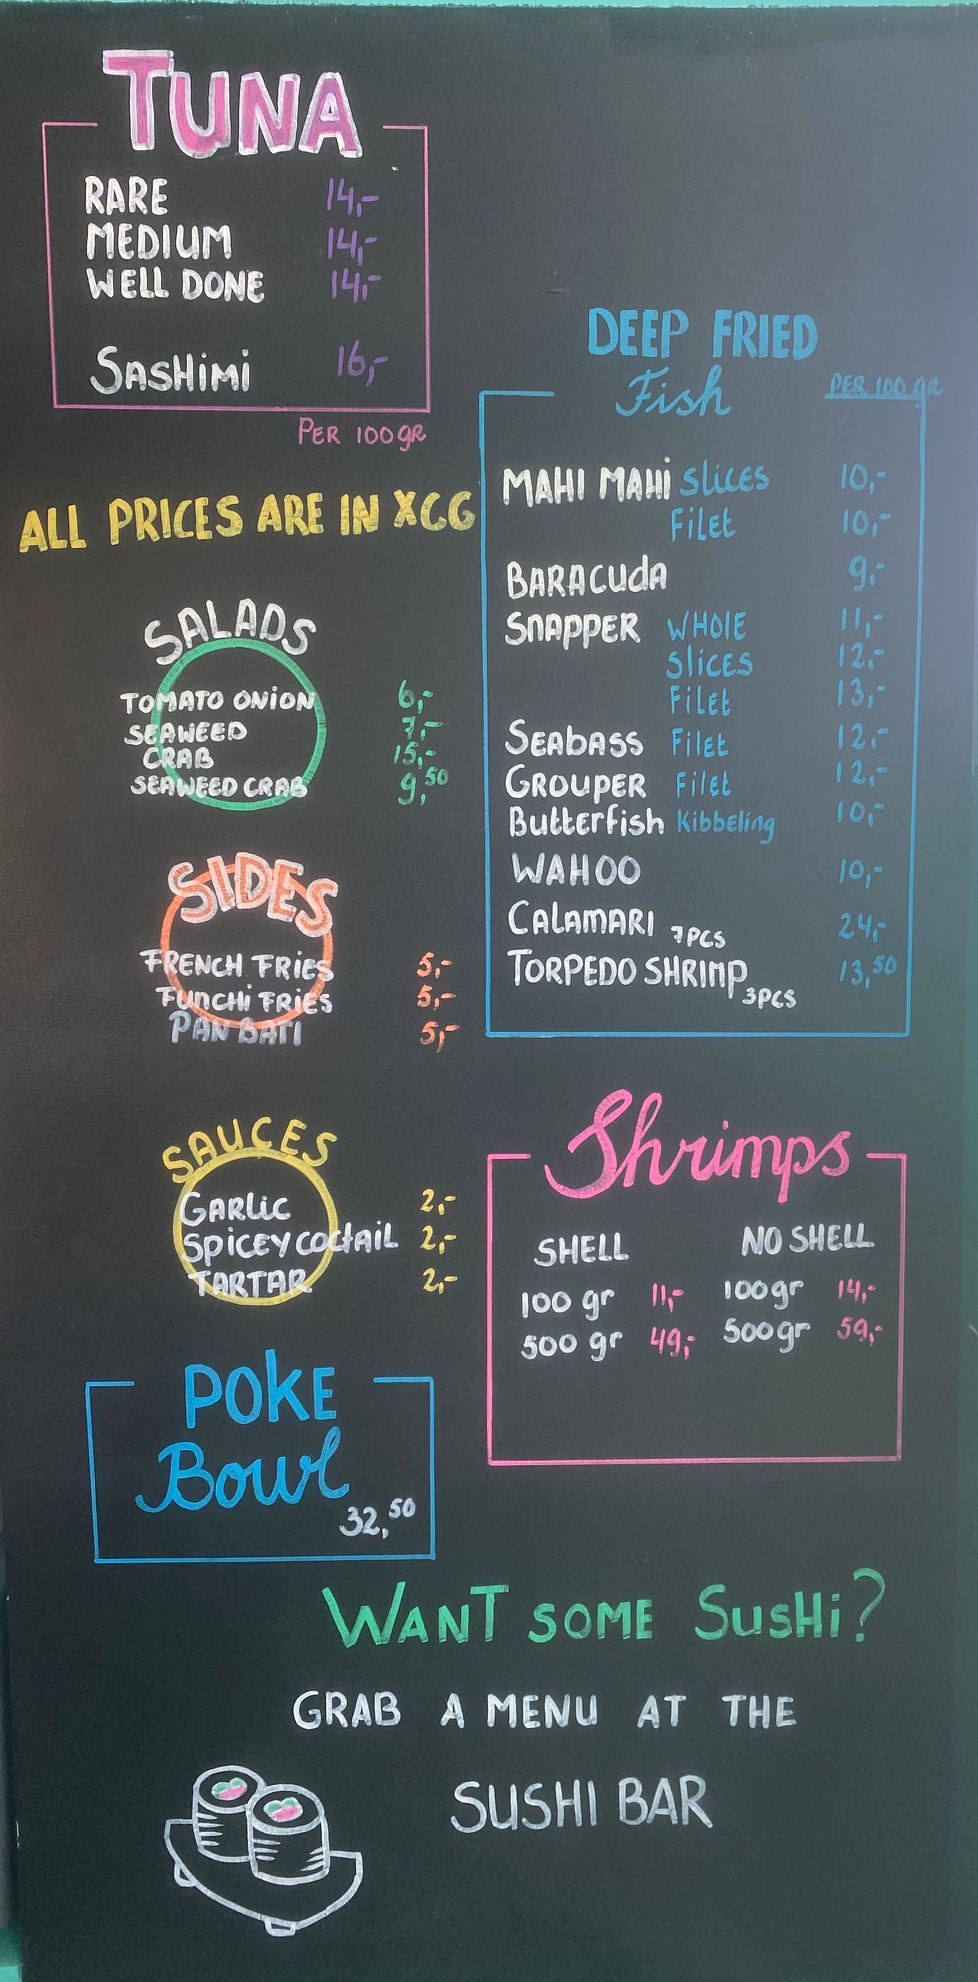 TUNA
RARE 14,-
MEDIUM 14,-
WELL DONE 14,-
SASHIMI 16,-
PER 100 GR
ALL PRICES ARE IN XCG
SALADS
TOMATO ONION 6,-
SEAWEED 7,-
CRAB 15,-
SEAWEED CRAB 9,50
SIDES
FRENCH FRIES 5,-
FUNCHI FRIES 5,-
PAN BATI 5,-
SAUCES
GARLIC 2,-
SPICEY COCTAIL 2,-
TARTAR 2,-
POKE
Bowl
32,50
DEEP FRIED
Fish PER 100 gr
MAHI MAHI SLICES 10,-
FILET 10,-
BARACUDA 9,-
SNAPPER WHOLE 11,-
SLICES 12,-
FILET 13,-
SEABASS FILET 12,-
GROUPER FILET 12,-
Butterfish Kibbeling 10,-
WAHOO 10,-
CALAMARI 7PCS 24,-
TORPEDO SHRIMP 3PCS 13,50
Shrimps
SHELL NO SHELL
100 gr 11,- 100gr 14,-
500 gr 49,- 500gr 59,-
WANT SOME SUSHI?
GRAB A MENU AT THE
SUSHI BAR